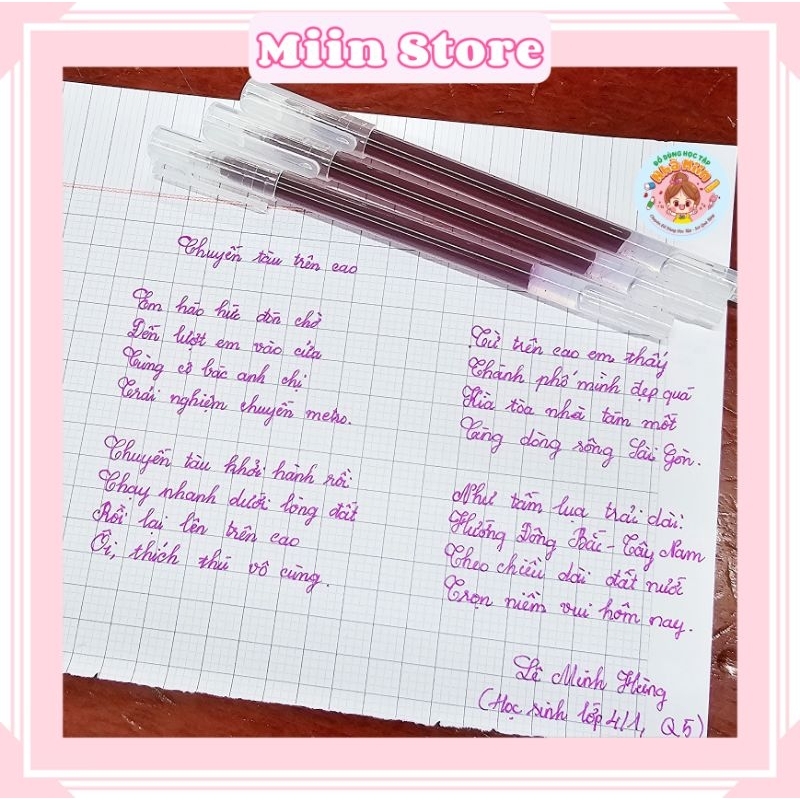 Miin Store
ĐỒ DÙNG HỌC TẬP
Nhà Miin
Chuyến tàu trên cao
Em háo hức đón chờ
Đến lượt em vào cửa
Cùng cô bác anh chị
Trải nghiệm chuyến metro.
Chuyến tàu khởi hành rồi
Chạy nhanh dưới lòng đất
Rồi lại lên trên cao
Ôi, thích thú vô cùng.
Từ trên cao em thấy
Thành phố mình đẹp quá
Kìa tòa nhà tám mốt
Cùng dòng sông Sài Gòn.
Như tấm lụa trải dài.
Hướng Đông Bắc - Tây Nam
Theo chiều dài đất nước
Trọn niềm vui hôm nay.
Lê Minh Hùng
(Học sinh lớp 4/1, Q5)